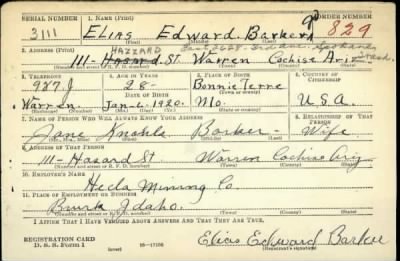 SERIAL NUMBER 1. NAME (Print) ORDER NUMBER
3111 ELIAS Edward Barker 829
(First) (Middle) (Last)
2. ADDRESS (Print) HAZZARD East 2628 - 3rd ave Spokane Wash.
111- Hazard. ST. Warren Cochise Ariz
3. TELEPHONE 4. AGE IN YEARS 5. PLACE OF BIRTH 6. COUNTRY OF CITIZENSHIP
987J 28- Bonnie Terre
DATE OF BIRTH
Warren Jan-6-1920. Mo. U.S.A.
7. NAME OF PERSON WHO WILL ALWAYS KNOW YOUR ADDRESS 8. RELATIONSHIP OF THAT PERSON
Jane Barker - Wife
9. ADDRESS OF THAT PERSON
111- Hazard St Warren Cochise Ariz
10. EMPLOYER'S NAME
Hecla Mining Co.
11. PLACE OF EMPLOYMENT OR BUSINESS
Burk Idaho.
I AFFIRM THAT I HAVE VERIFIED ABOVE ANSWERS AND THAT THEY ARE TRUE.
REGISTRATION CARD
D. S. S. FORM 1 16-17105 Elias Edward Barker